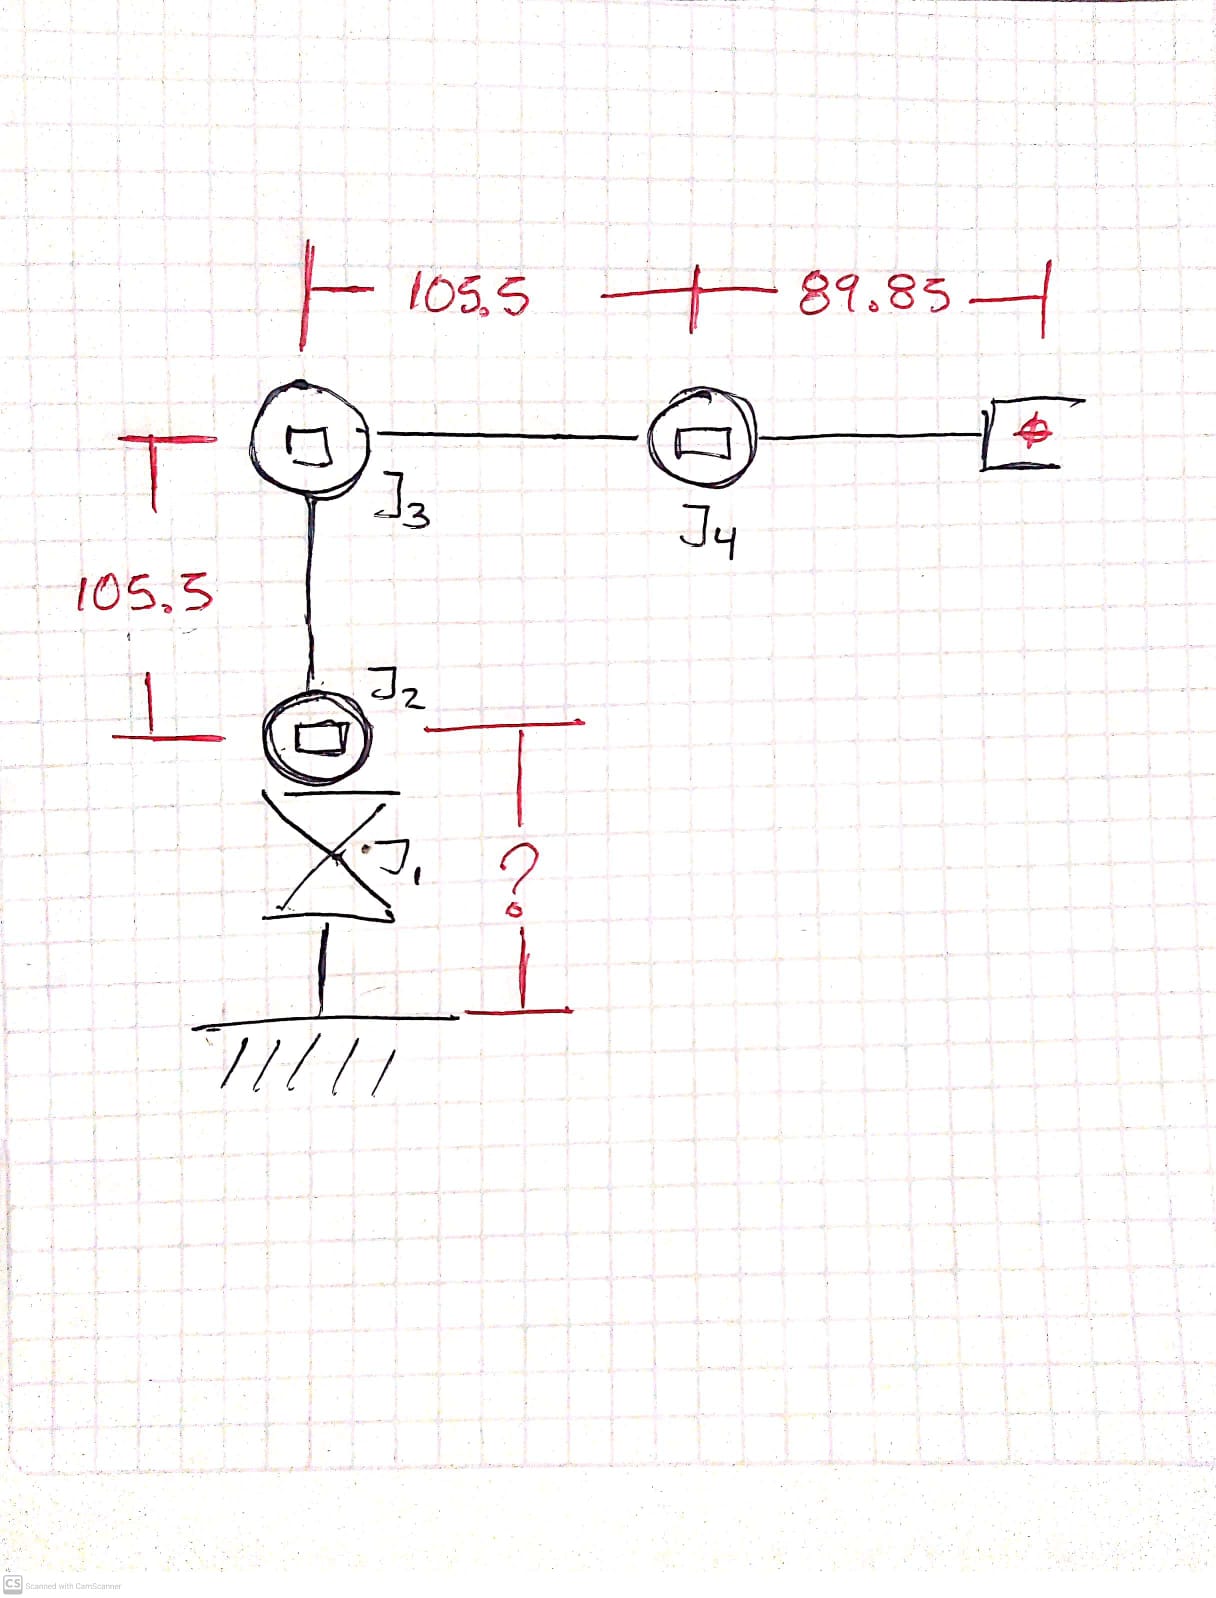 105.5 89.85
J3
J4
105.5
J2
J1
?
CS Scanned with CamScanner